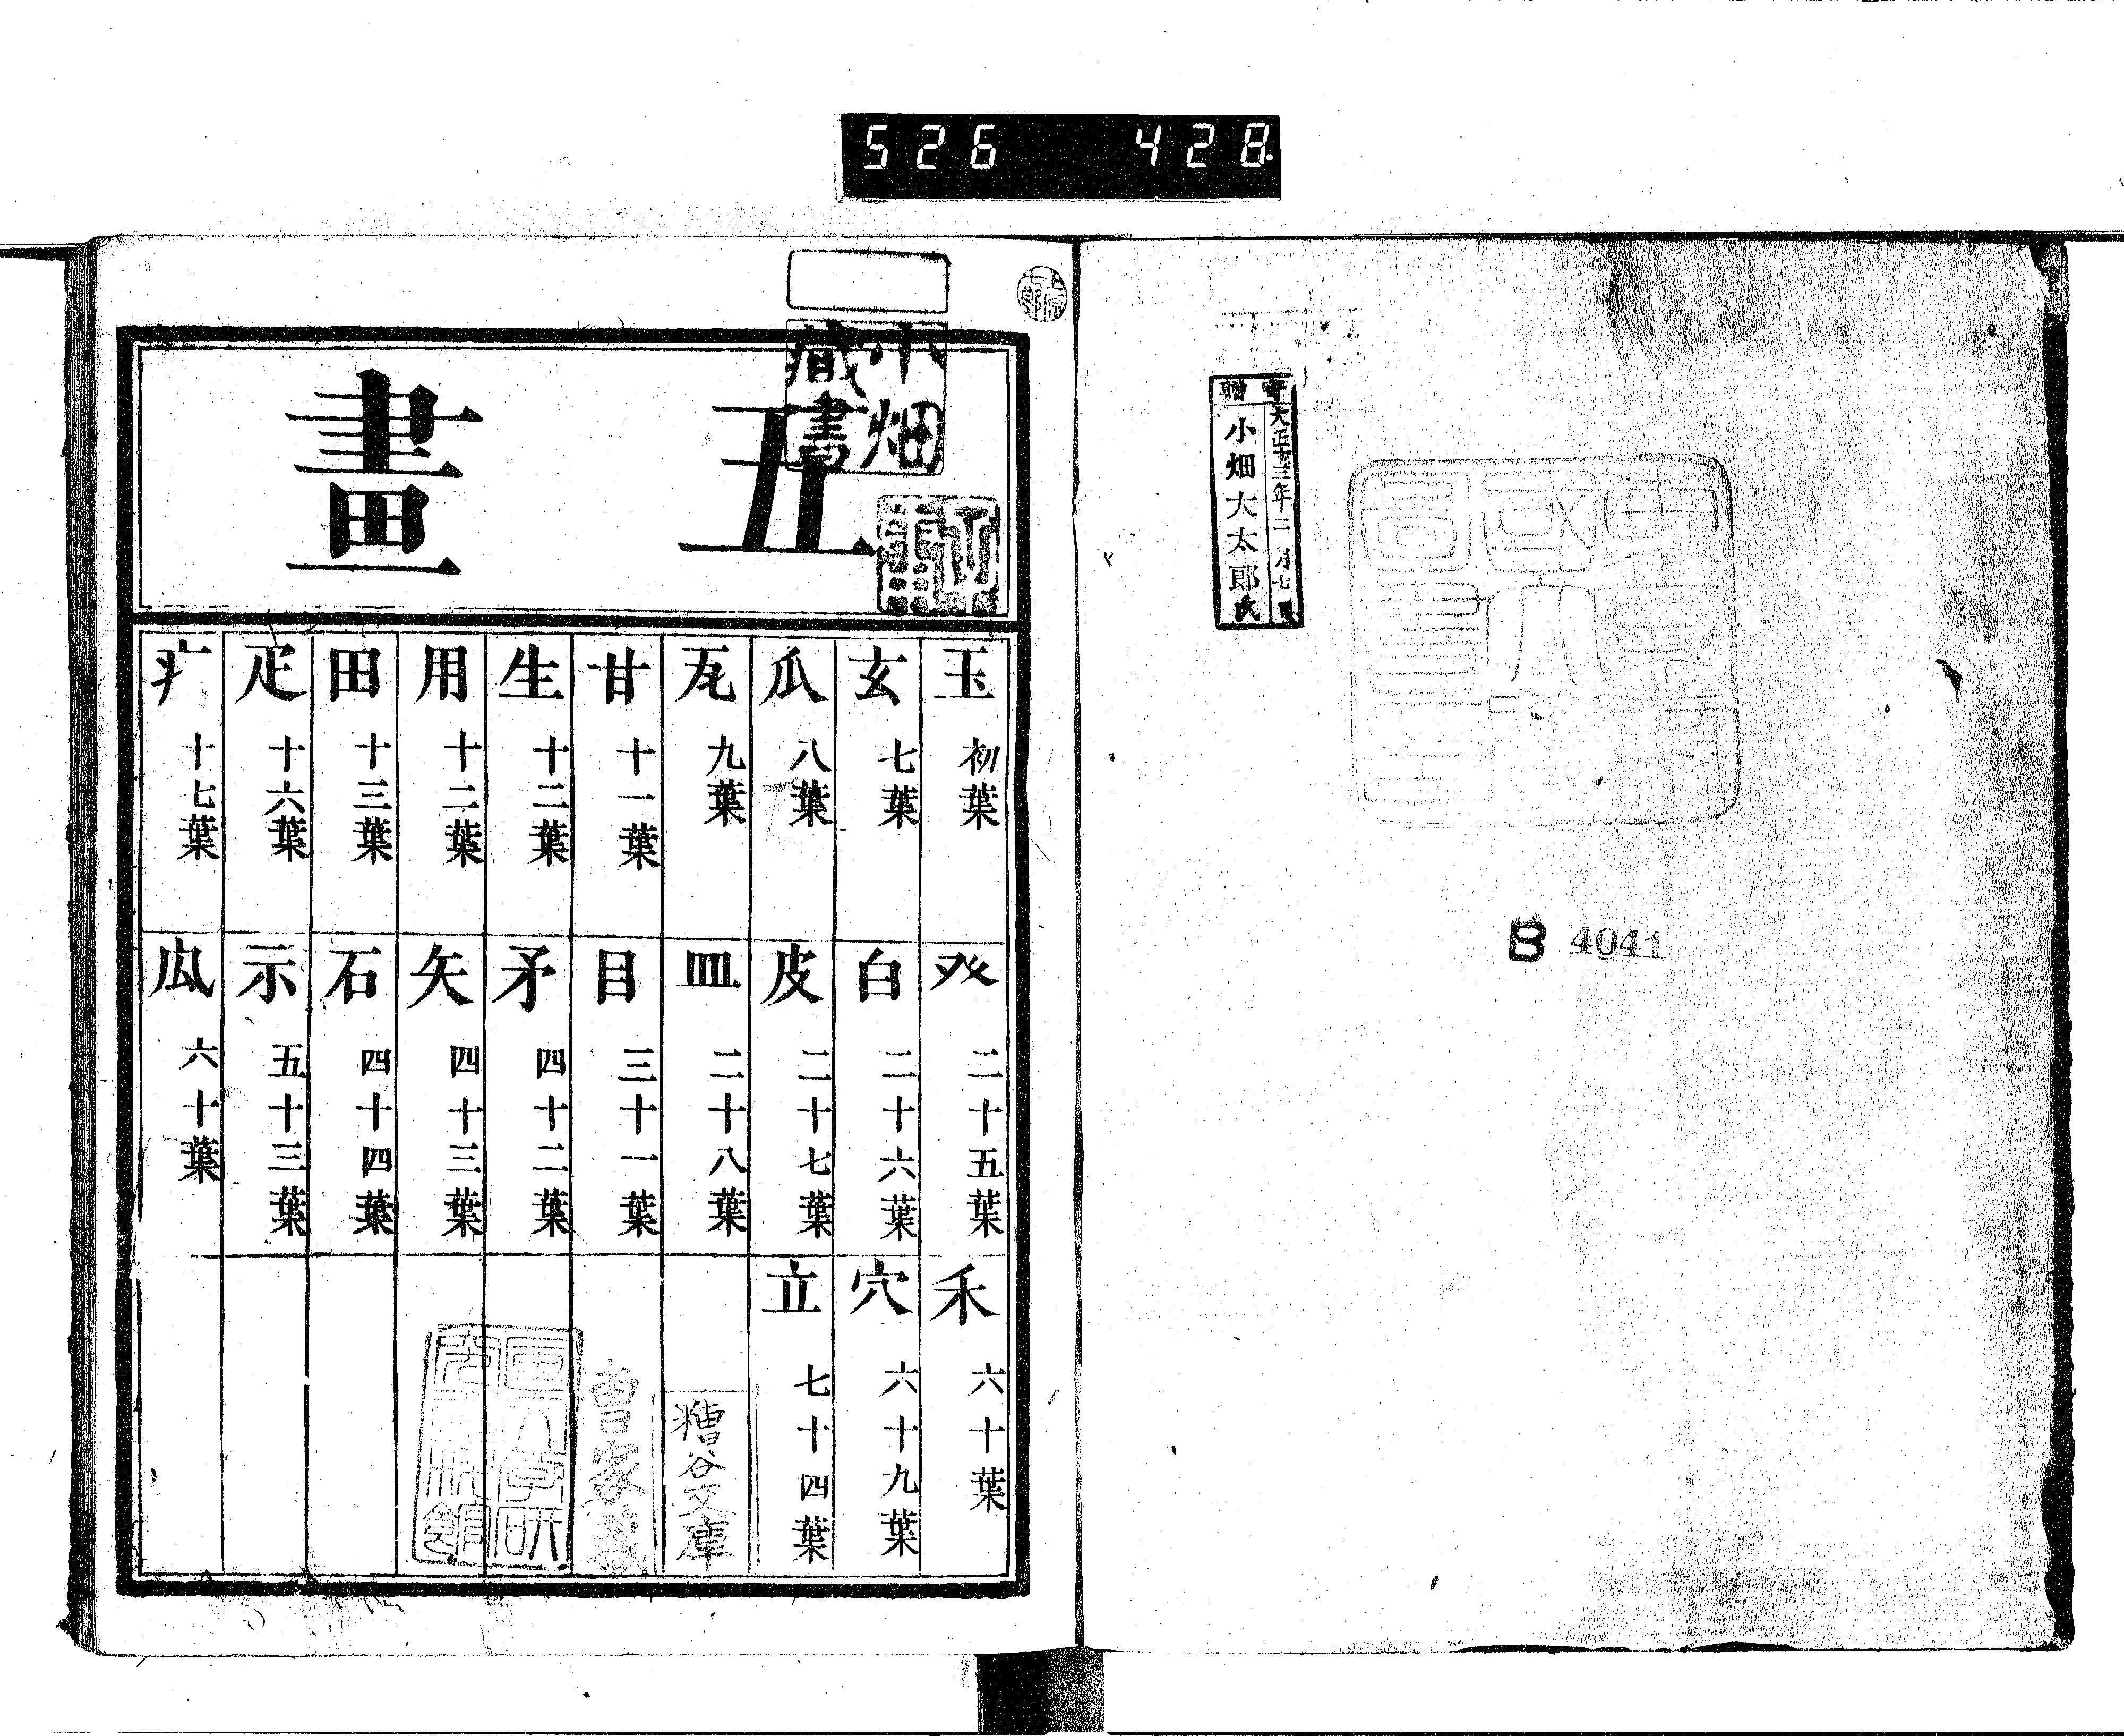 526 428
寄贈
大正十三年二月七日
小畑大太郎氏
B 4041
小畑
藏書
五畫
玉 初葉
玄 七葉
瓜 八葉
瓦 九葉
甘 十一葉
生 十二葉
用 十二葉
田 十三葉
疋 十六葉
疒 十七葉
癶 二十五葉
白 二十六葉
皮 二十七葉
皿 二十八葉
目 三十一葉
矛 四十二葉
矢 四十三葉
石 四十四葉
示 五十三葉
禸 六十葉
禾 六十葉
穴 六十九葉
立 七十四葉
糟谷文庫
曽家蔵